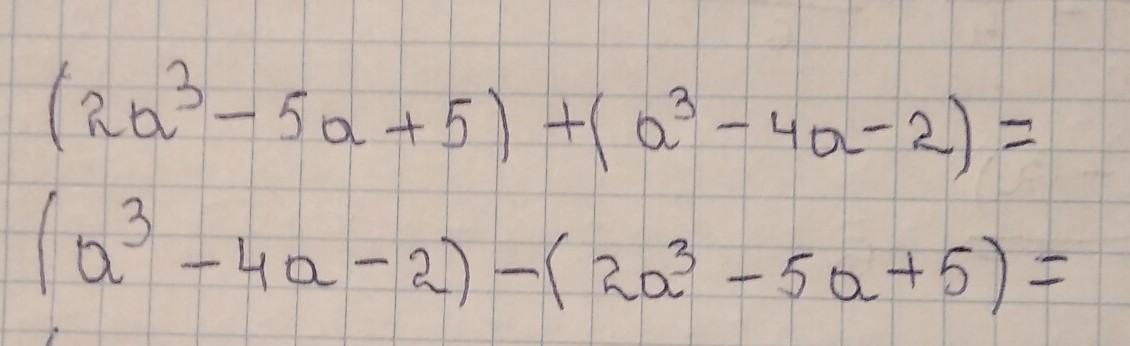 (2a³ - 5a + 5) + (a³ - 4a - 2) =
(a³ - 4a - 2) - (2a³ - 5a + 5) =